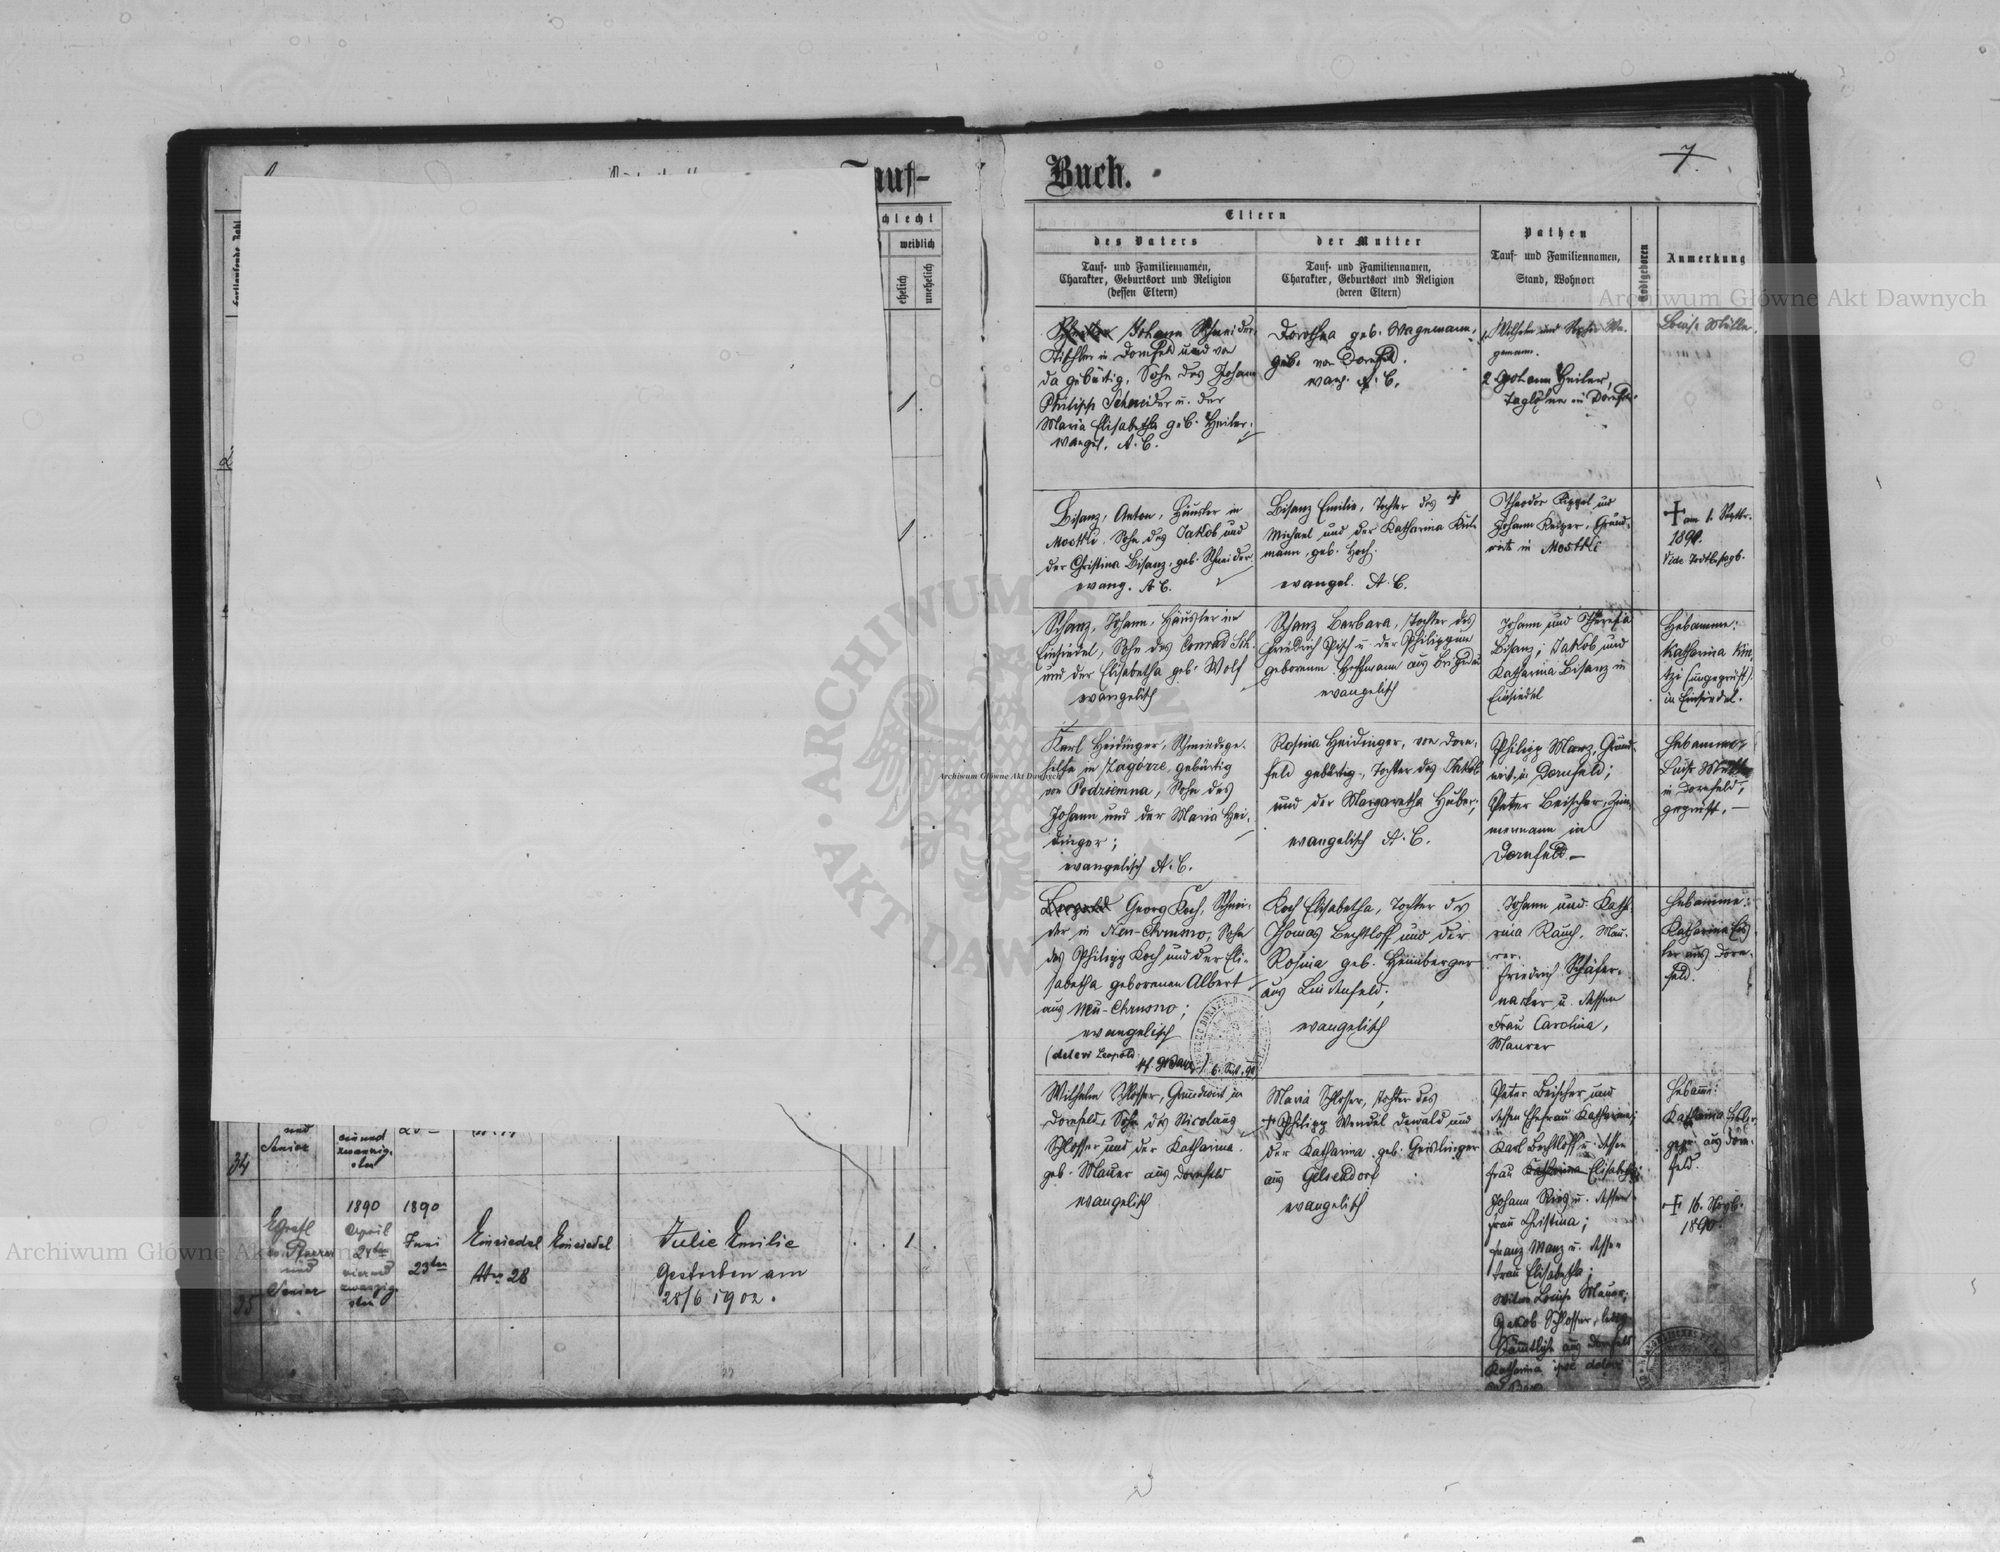 Tauf-
chlecht
weiblich
ehelich
unehelich
Fortlaufende Zahl
1
1
34
und
Senior
ein und
zwanzig-
sten
35
Pfarrer
und
Senior
1890
April
24ten
vier und
zwanzig-
sten
1890
Juni
23ten
Einsiedel
Nro 28
Einsiedel
Julie Emilie
Gestorben am
28/6 1902.
1
Buch.
7.
Eltern
des Vaters
Tauf- und Familiennamen,
Charakter, Geburtsort und Religion
(dessen Eltern)
der Mutter
Tauf- und Familiennamen,
Charakter, Geburtsort und Religion
(deren Eltern)
Pathen
Tauf- und Familiennamen,
Stand, Wohnort
Todtgeboren
Anmerkung
Johann Schneider,
Tischler in Dornfeld und von
da gebürtig, Sohn des Johann
Philipp Schneider u. der
Maria Elisabetha geb. Heiler,
evangel. A. C.
Dorothea geb. Wagemann,
geb. von Dornfeld.
evang. A. C.
1. Wilhelm und Sophie Wa-
gemann.
2 Johann Heiler,
Taglöhner in Dornfeld
Louise Müller.
Bisanz, Anton, Häusler in
Mostki, Sohn des Jakob und
der Christina Bisanz, geb. Schneider.
evang. A. C.
Bisanz Emilie, Tochter des +
Michael und der Katharina
mann, geb. Hoch.
evangel. A. C.
Theodor Rippel und
Johann Keiper, Grund-
wirte in Mostki
+ am 1. Septbr.
1890.
Vide
Schanz, Johann, Häusler in
Einsiedel, Sohn des Conrad Sch.
und der Elisabetha geb. Wolf
evangelisch
Schanz Barbara, Tochter des
Friedrich u. der Philippina
geborenen Hoffmann aus Brigidau
evangelisch
Johann und Theresia
Bisanz; Jakob und
Katharina Bisanz in
Einsiedel
Hebamme:
Katharina Kin-
tzi (ungeprüft)
in Einsiedel.
Karl Heidinger, Schmiedege-
hilfe in Zagórze, gebürtig
von Podziemna, Sohn des
Johann und der Maria Hei-
dinger;
evangelisch A. C.
Rosina Heidinger, von Dorn-
feld gebürtig, Tochter des Jakob
und der Margaretha Huber;
evangelisch A. C.
Philipp Manz, Grund-
wirt in Dornfeld;
Peter Beischer, Zim-
mermann in
Dornfeld —
Hebamme:
Luise
in Dornfeld,
geprüft. —
Leopold Georg Koch, Schnei-
der in Neu-Chrusno, Sohn
des Philipp Koch und der Eli-
sabetha geborenen Albert
aus Neu-Chrusno;
evangelisch
(delevi Leopold
Koch Elisabetha, Tochter des
Thomas Bechtloff und der
Rosina geb. Heimberger
aus Lindenfeld;
evangelisch
Johann und Katha-
rina Rauch, Mau-
rer.
Friedrich Schäfer-
necker u. dessen
Frau Carolina,
Maurer
Hebamme:
Katharina
aus Dorn-
feld.
Wilhelm Schlosser, Grundwirt in
Dornfeld, Sohn des Nicolaus
Schlosser und der Katharina
geb. Mauer aus Dornfeld
evangelisch
Maria Schlosser, Tochter des
+ Philipp Wendel Dewald und
der Katharina geb. Geislinger
aus Gelsendorf
evangelisch
Peter Beischer und
dessen Ehefrau Katharina;
Karl Bechtloff u. dessen
Frau Katharina Elisabetha;
Johann u. dessen
Frau Christina;
Franz Manz u. dessen
Frau Elisabetha;
Louise Mauer;
Jakob Schlosser, ledig
Sämtliche aus Dornfeld
Katharina ipse delevi
Hebamme:
Katharina
gepr. aus Dorn-
feld.
+ 16. Novb.
1890.
Archiwum Główne Akt Dawnych
Archiwum Główne Akt Dawnych
Archiwum Główne Akt Dawnych